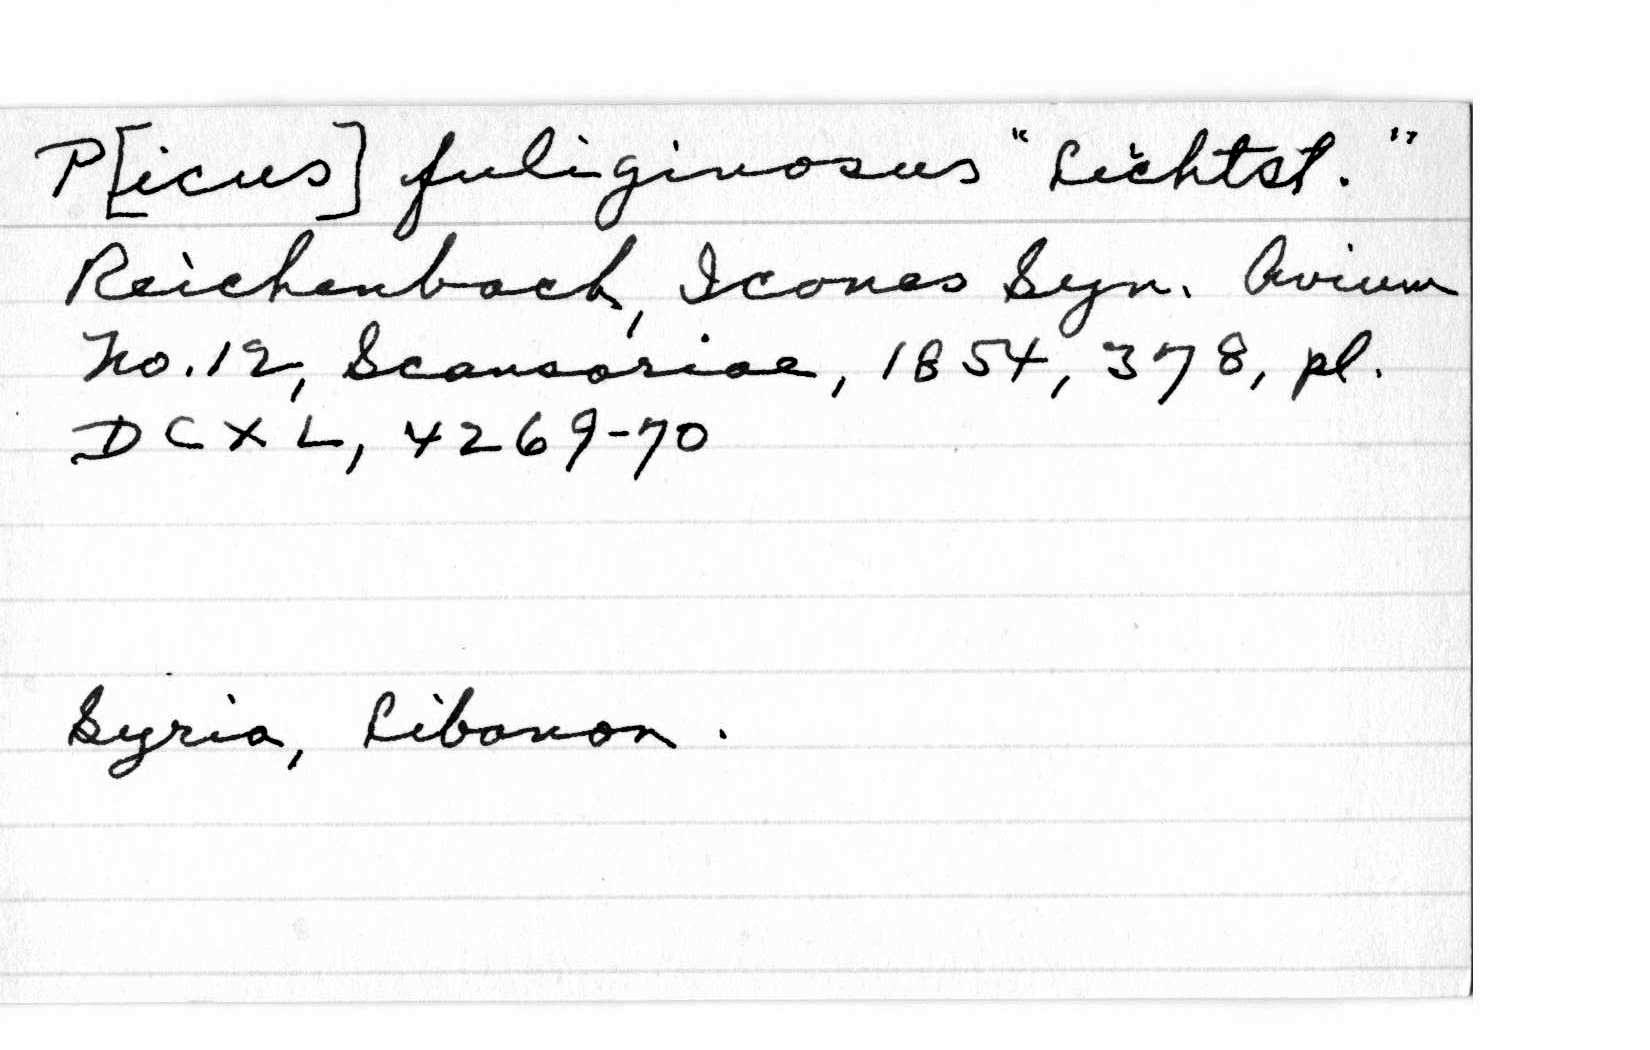 P[icus] fuliginosus "Lichtst."
Reichenbach, Icones Syn. Avium
No. 12, Scansoriae, 1854, 378, pl.
DCXL, 4269-70
Syria, Libanon.